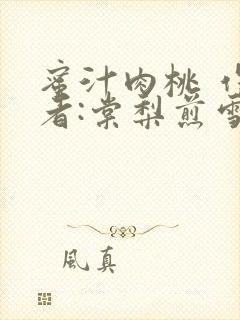 蜜汁肉桃 作
者:棠梨煎雪
風真